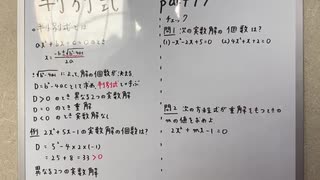 判別式
part17
判別式とは
ax²+bx+c=0のとき
x = -b±√b²-4ac / 2a
√b²-4ac によって解の個数が決まる
D=b²-4acとして求め、判別式と呼ぶ
D>0 のとき 異なる2つの実数解
D=0 のとき 重解
D<0 のとき 実数解なし
例 2x²+5x-1の実数解の個数は?
D = 5²-4×2×(-1)
= 25+8 = 33 >0
異なる2つの実数解
チェック
問1 次の実数解の個数は?
(1)-x²-2x+5=0 (2)4x²+2x+2=0
問2 次の方程式が重解をもつとき
mの値を求めよ
2x²+mx-1=0